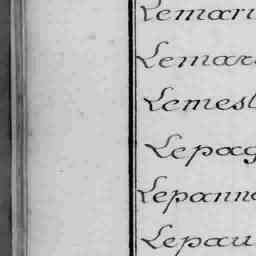 Lemari
Lemar
Lemesl
Lepag
Lepann
Lepau